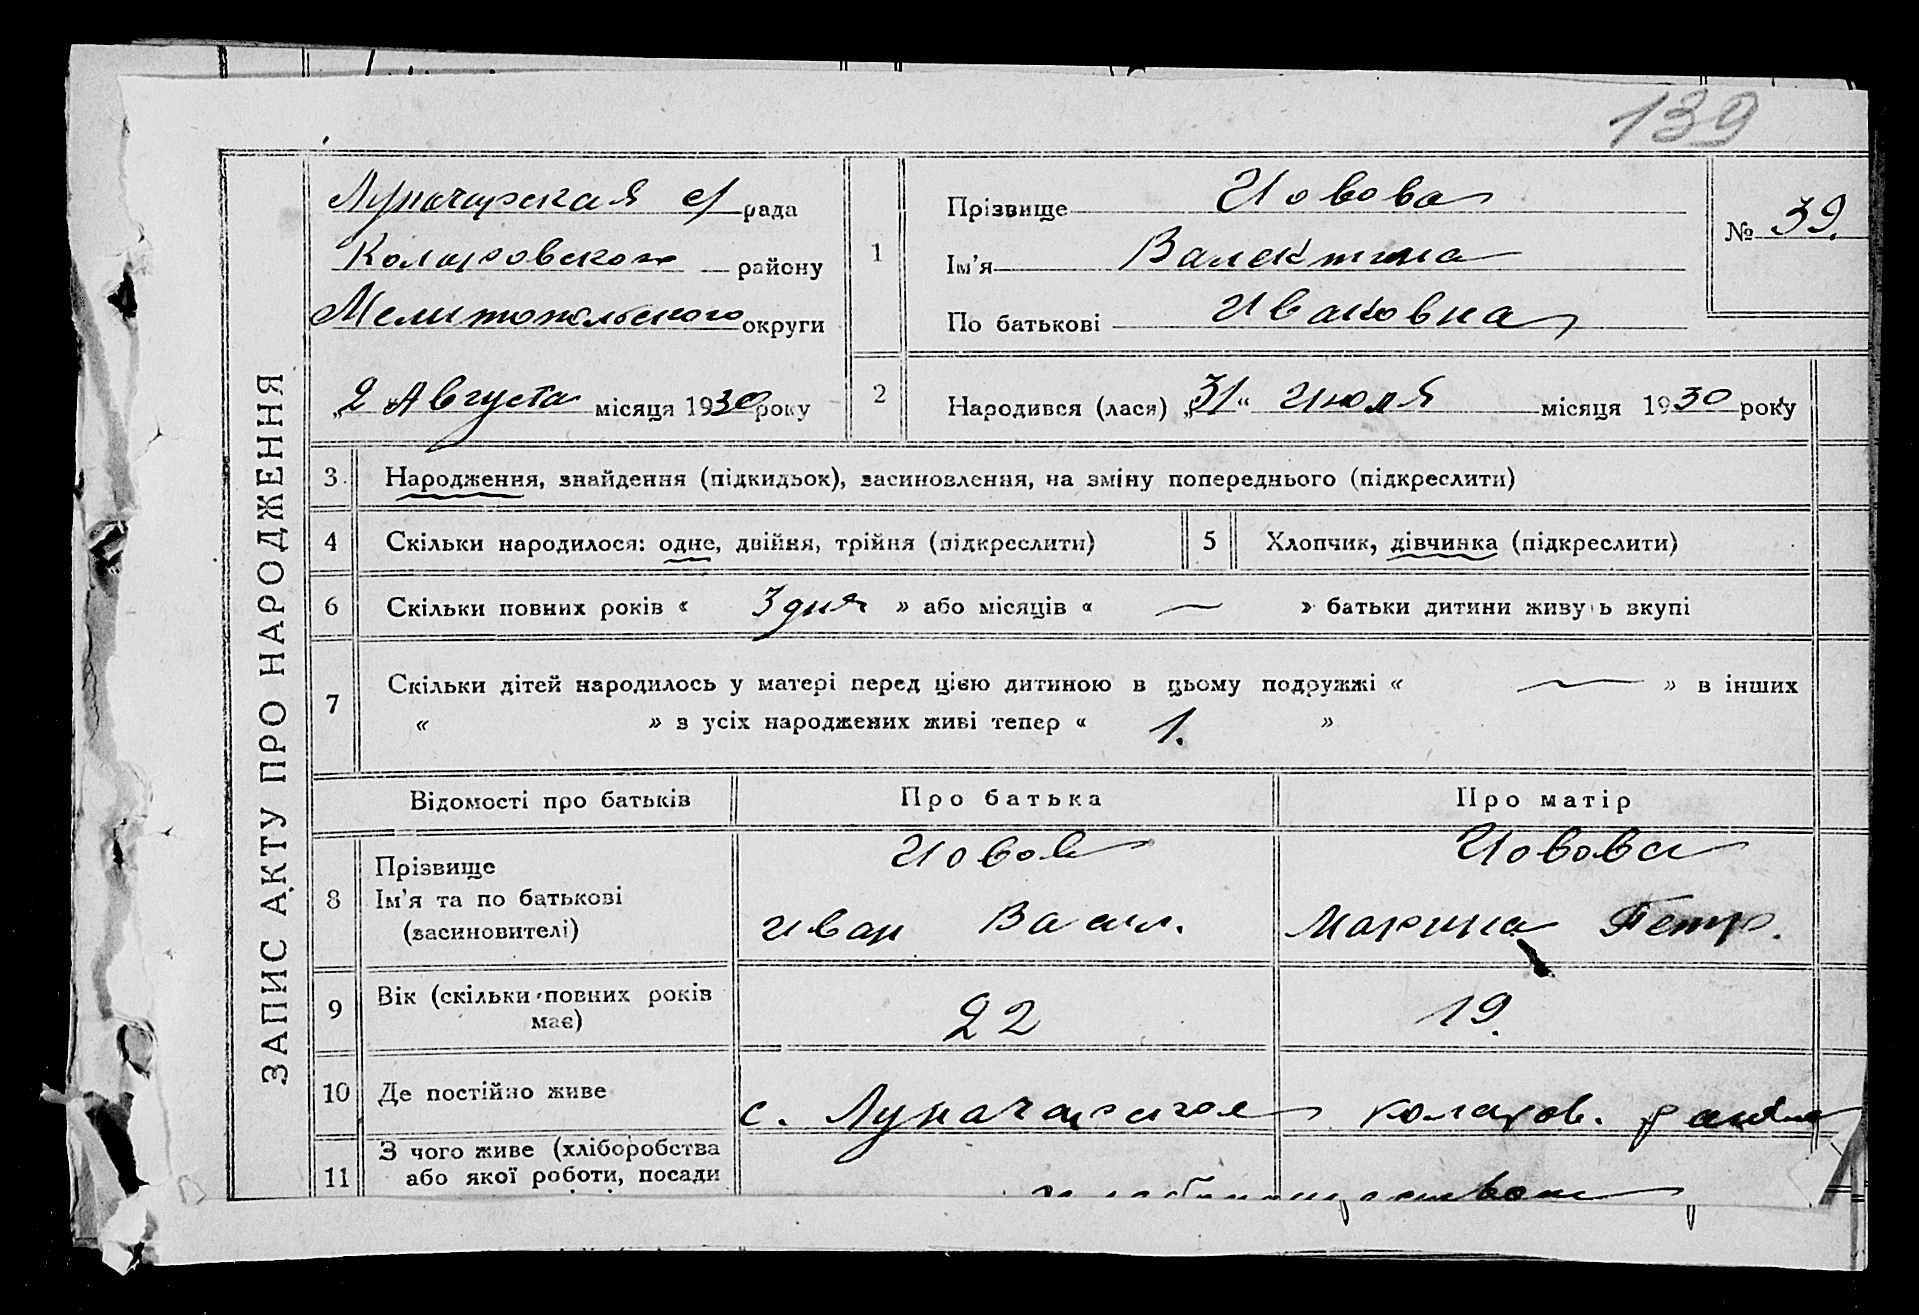 139
ЗАПИС АКТУ ПРО НАРОДЖЕННЯ
Луначарская с/рада
Коларовского району
Мелитопольского округи
„2 Августа місяця 1930 року
1
Прізвище Иовова
Ім'я Валентина
По батькові Ивановна
№ 39.
2
Народився (лася) „31“ Июля місяця 1930 року
3. Народження, знайдення (підкидьок), засиновлення, на зміну попереднього (підкреслити)
4 Скільки народилося: одне, двійня, трійня (підкреслити)
5 Хлопчик, дівчинка (підкреслити)
6 Скільки повних років « 3 дня » або місяців « — » батьки дитини живуть вкупі
7 Скільки дітей народилось у матері перед цією дитиною в цьому подружжі « — » в інших
« » з усіх народжених живі тепер « 1. »
Відомості про батьків Про батька Про матір
8 Прізвище Иовов Иовова
Ім'я та по батькові Иван Васил. Марина Петр.
(засиновителі)
9 Вік (скільки повних років 22 19.
має)
10 Де постійно живе с. Луначарское Коларов. района
11 З чого живе (хліборобства
або якої роботи, посади